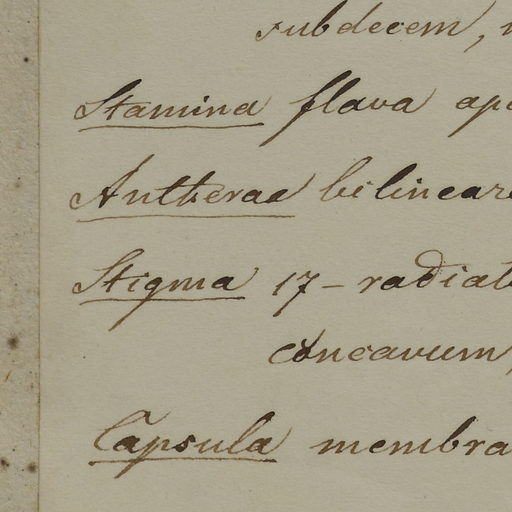 subdecem,
Stamina flava ap
Antherae bilinear
Stigma 17-radiat
concavum,
Capsula membra